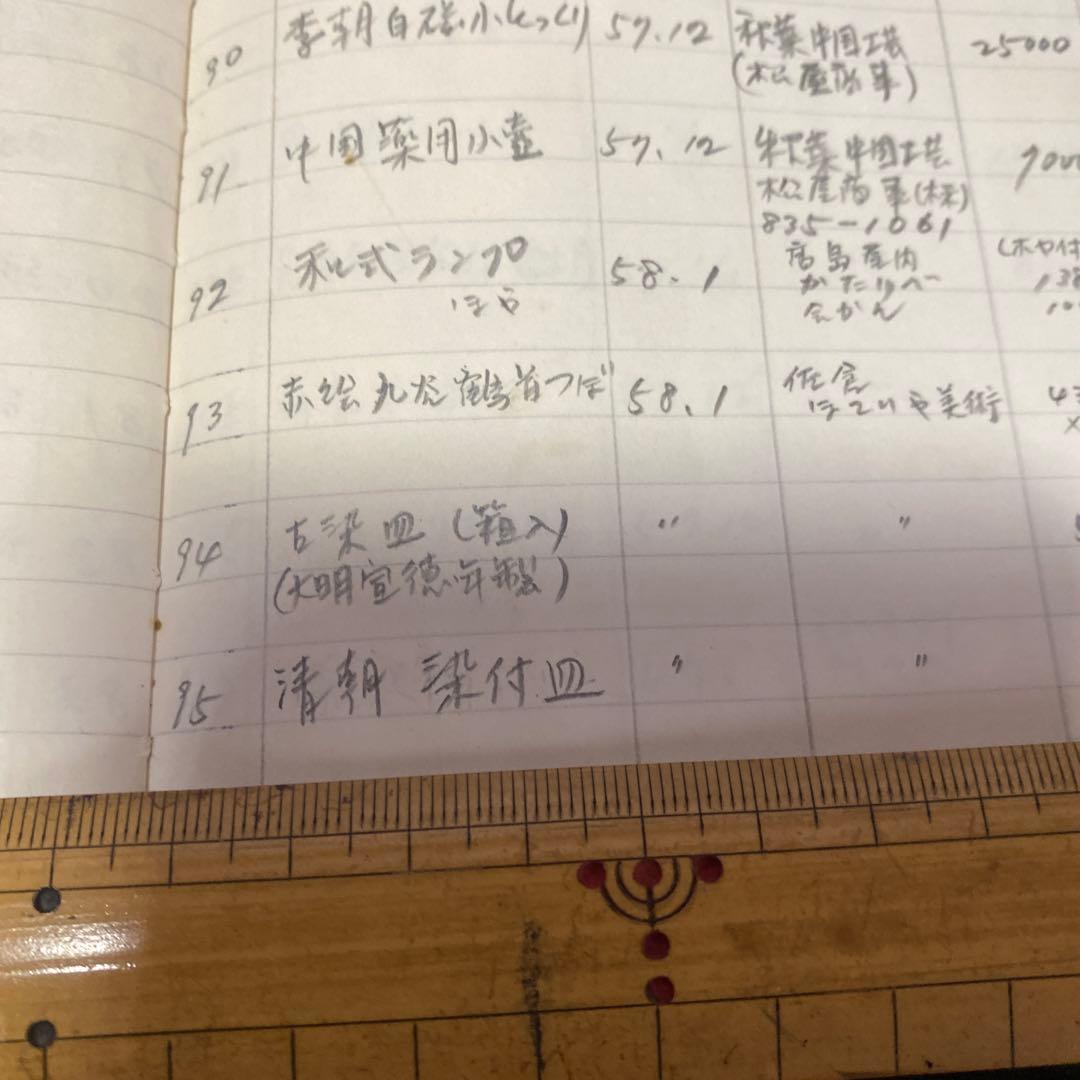 90 李朝白磁小とっくり 57.12 秋葉中国工芸 25000
(松屋商事)
91 中国薬用小壺 57.12 秋葉中国工芸
松屋商事(株)
835-1061
92 和式ランプ 58.1 高島屋内
かたりべ
(ホヤ付
138
93 赤絵九谷鶴首つぼ 58.1 佐倉
ほていや美術
94 古染皿(箱入) 〃 〃
(大明宣徳年製)
95 清朝 染付皿 〃 〃